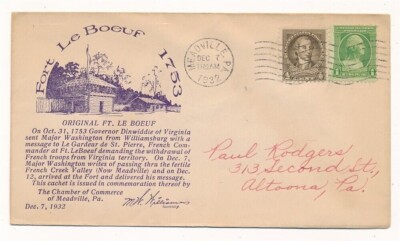 Fort Le Boeuf 1753
MEADVILLE, PA.
DEC 7
1932
ORIGINAL FT. LE BOEUF
On Oct. 31, 1753 Governor Dinwiddie of Virginia
sent Major Washington from Williamsburg with a
message to Le Gardeur de St. Pierre, French Com-
mander at Ft. LeBoeuf demanding the withdrawal of
French troops from Virginia territory. On Dec. 7,
Major Washington writes of passing thru the fertile
French Creek Valley (Now Meadville) and on Dec.
12, arrived at the Fort and delivered his Message.
This cachet is issued in commemoration thereof by
The Chamber of Commerce
of Meadville, Pa.
Dec. 7, 1932
Paul Rodgers
313 Second St.,
Altoona, Pa.